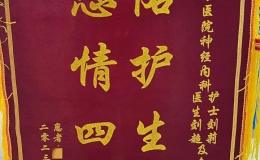 医院神经内科
护士刘莉
医生刘超及
护生
情四
患者
二零二三